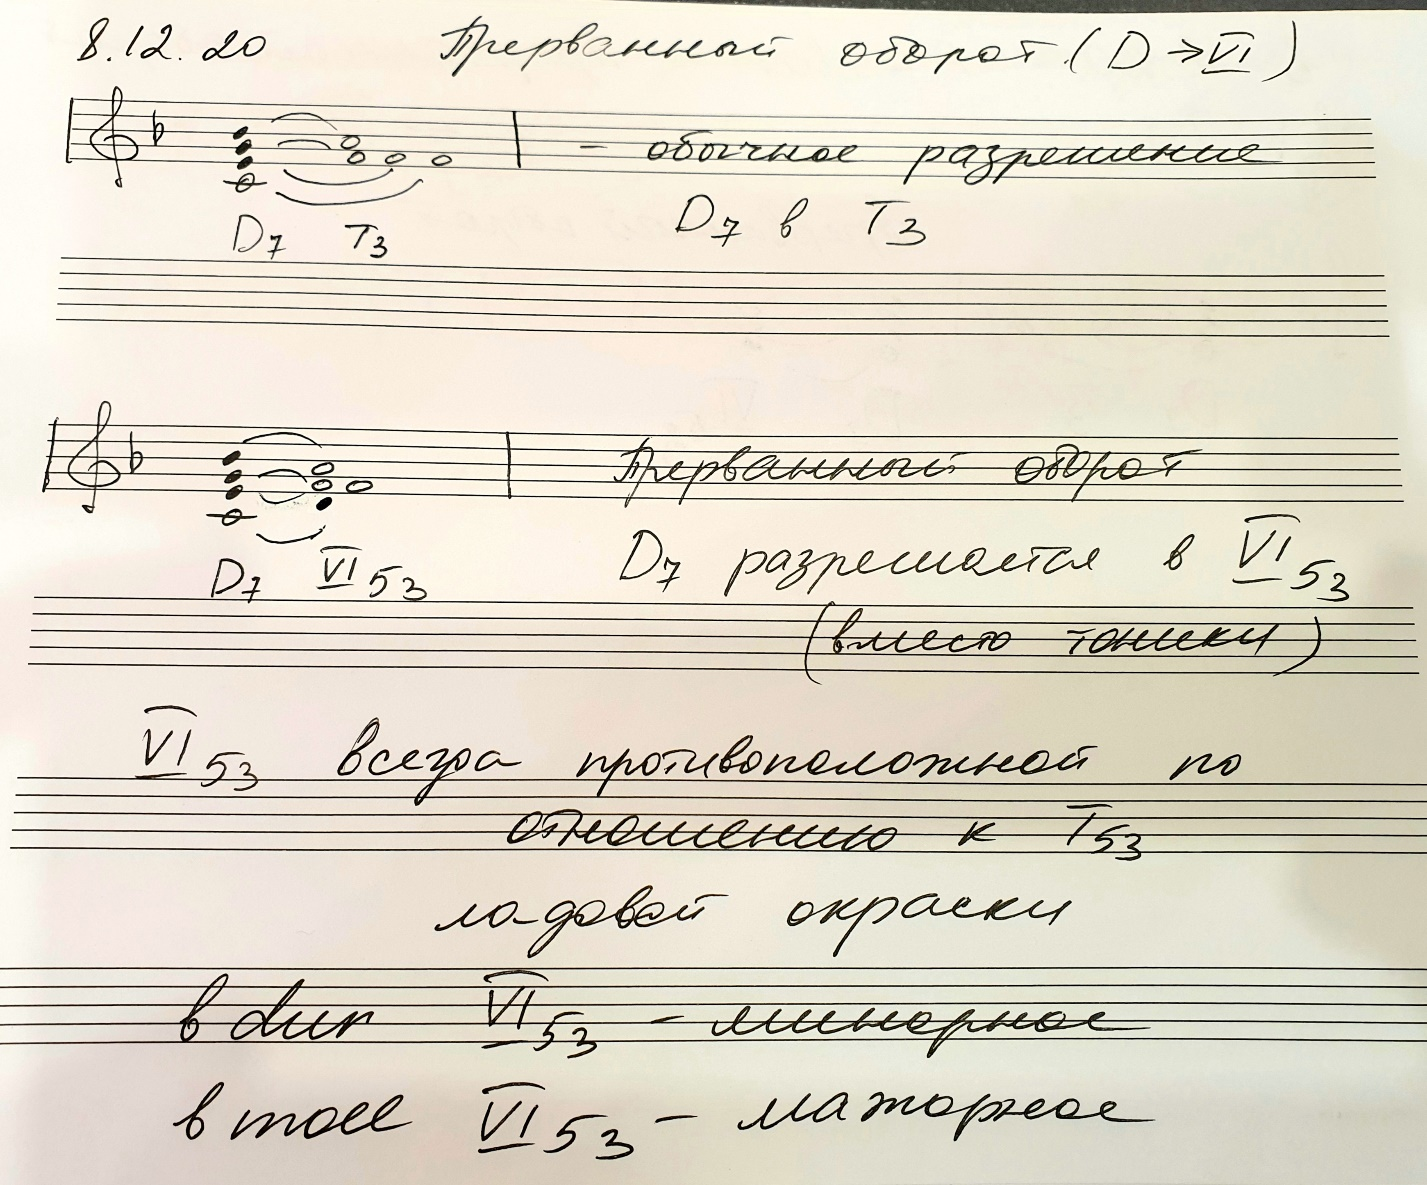 8.12.20 Прерванный оборот (D→VI)
- обычное разрешение
D7 T3 D7 в T3
Прерванный оборот
D7 VI53 D7 разрешается в VI53
(вместо тоники)
VI53 всегда противоположной по
отношению к T53
ладовой окраски
в dur VI53 - минорное
в moll VI53 - мажорное